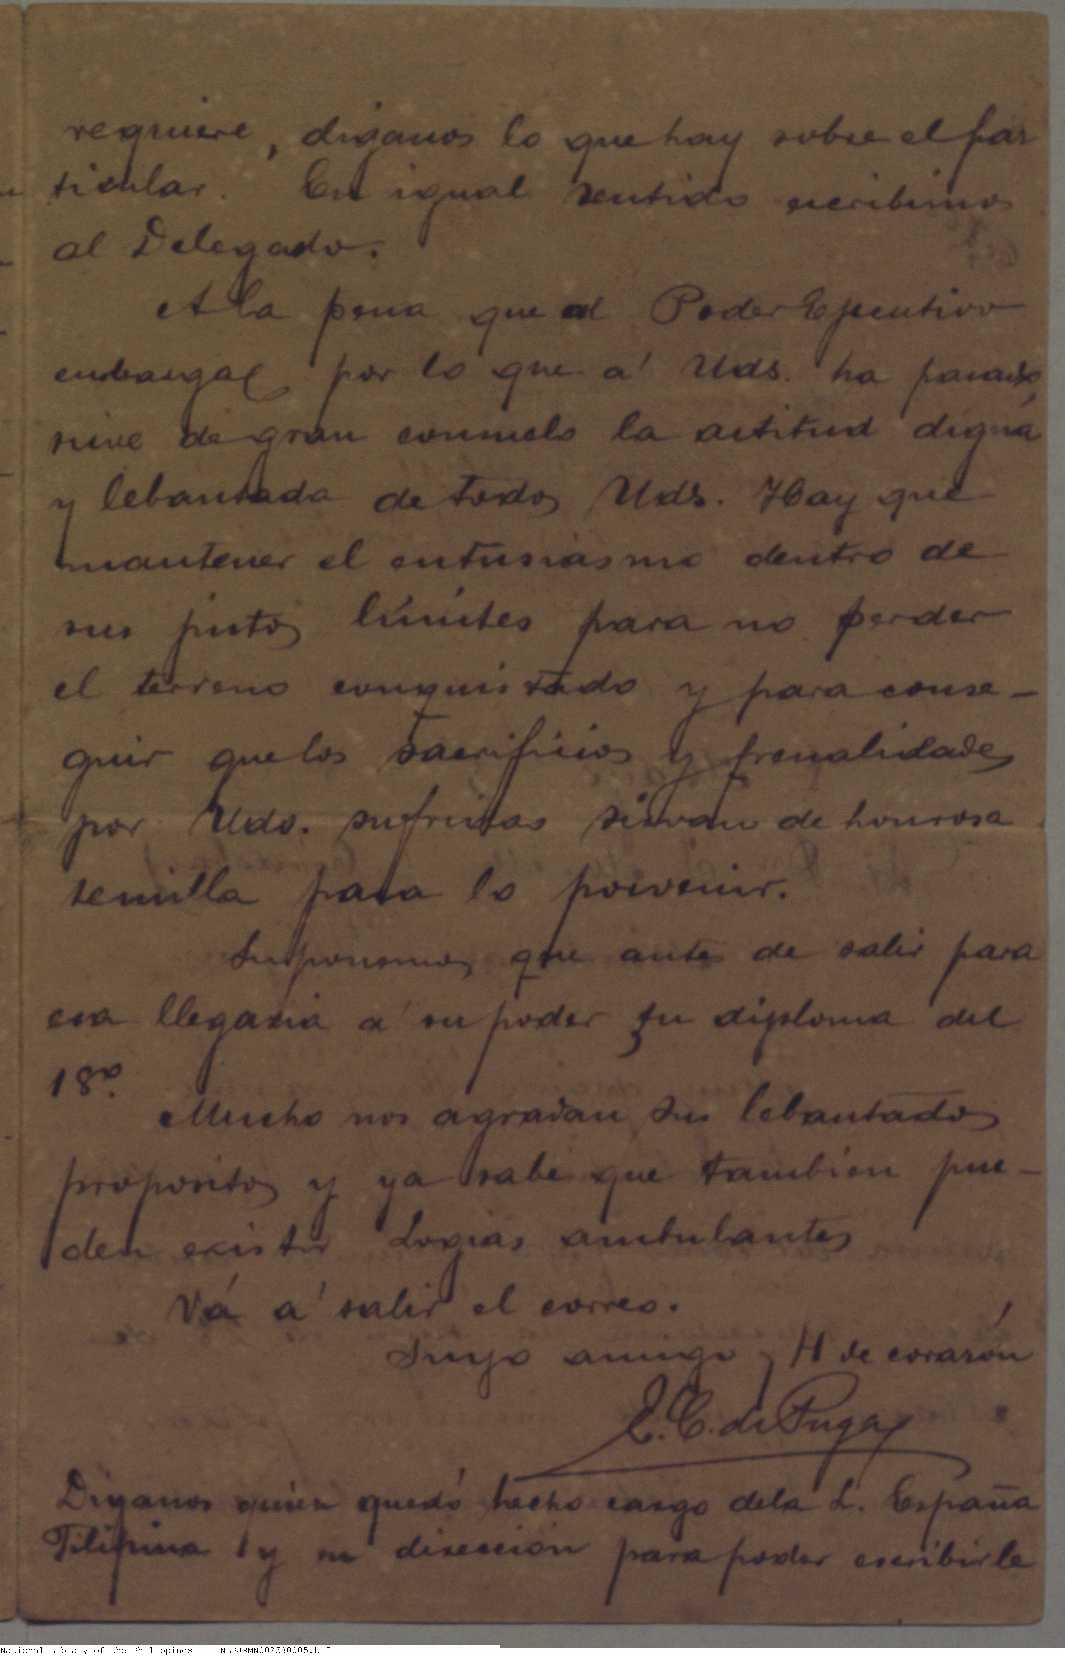 requiere, diganos lo que hay sobre el par
ticular. En igual sentido escribimos
al Delegado.
A la pena que al Poder Ejecutivo
embarga por lo que a' Uds. ha pasado,
sirve de gran consuelo la actitud digna
y lebantada de todos Uds. Hay que
mantener el entusiasmo dentro de
sus justos límites para no perder
el terreno conquistado y para conse-
guir que los sacrificios y penalidades
por Uds. sufridas sirvan de honrosa
semilla para lo porvenir.
Suponemos que antes de salir para
esa llegaria a' su poder su diploma del
18º.
Mucho nos agradan sus lebantados
propositos y ya sabe que tambien pue-
den existir Logias ambulantes
Vá a' salir el correo.
Suyo amigo y H de corazón
E. C. de Puga
Diganos quien quedó hecho cargo dela L. España
Filipina y su direccion para poder escribirle
National Library of the Philippines